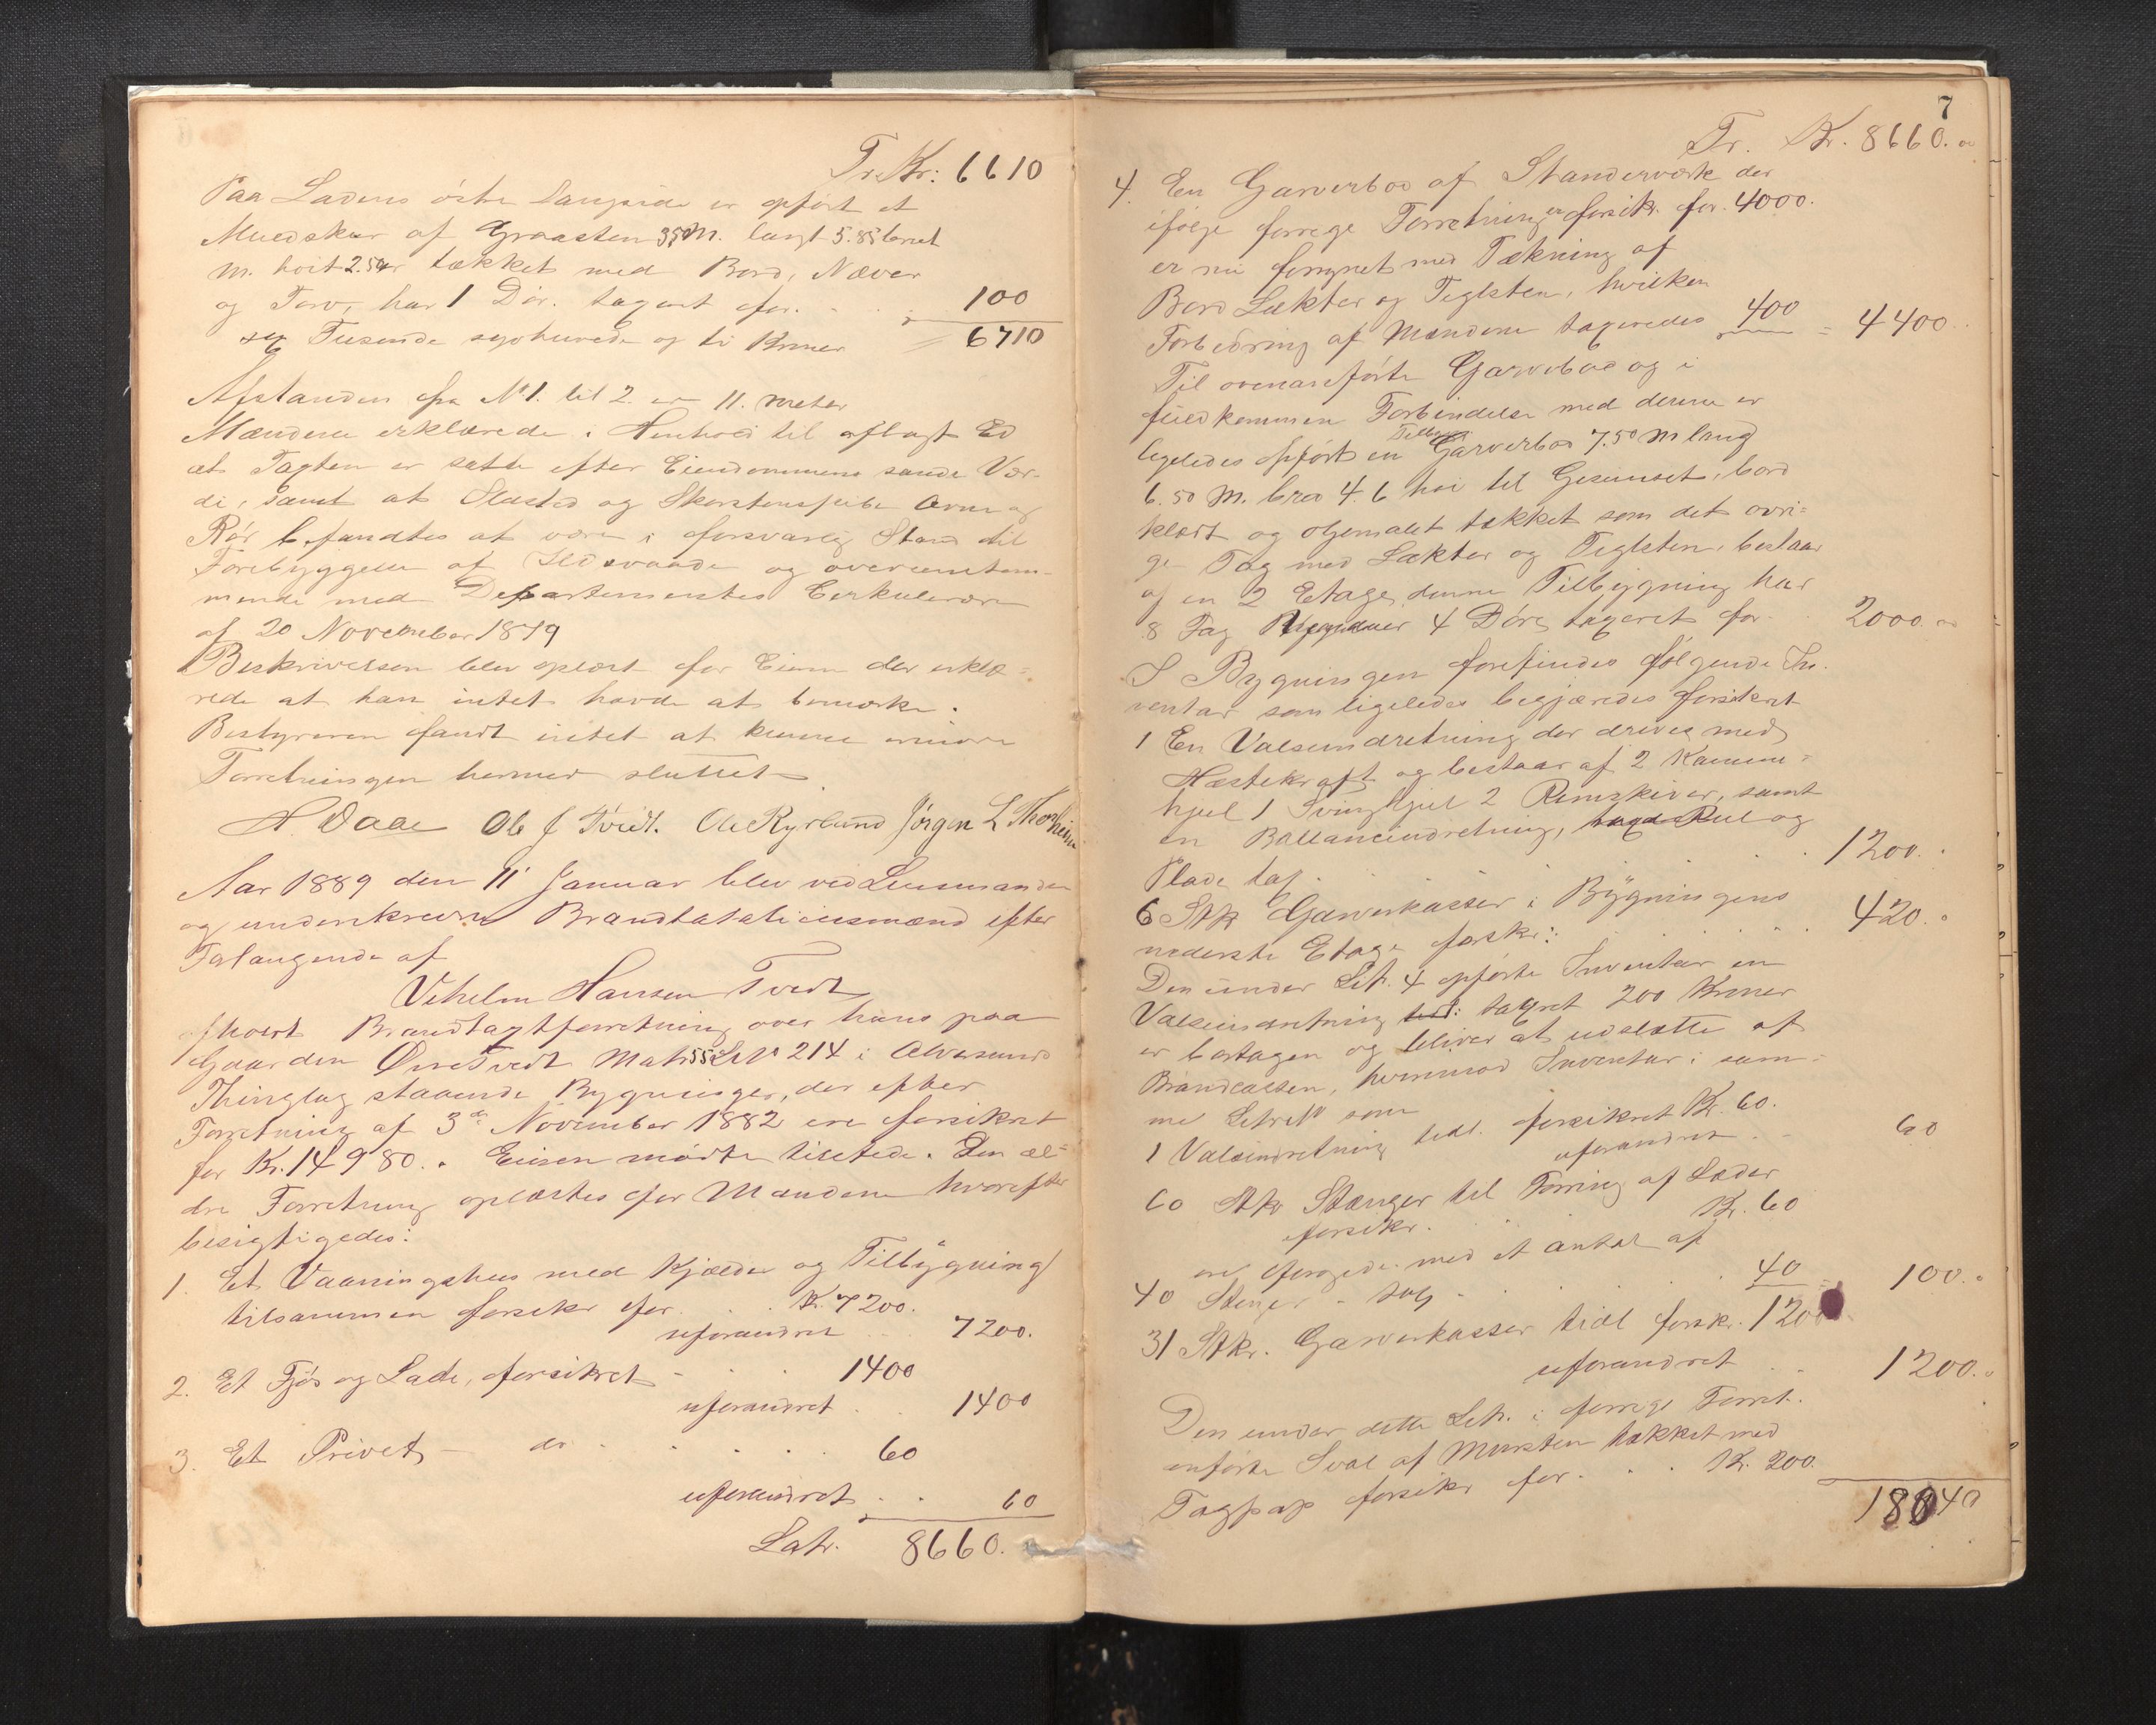 Tr. Kr: 6610
Paa Ladens östre Langside er opfört et
Muedskur af Graasten 3,50 M. langt 5.85 bredt
m. hoit 2.50 er tækket med Bord, Næver
og Torv, har 1 Dör. taxeret for. . . 100
sex Tusende syvhundrede og ti Kroner = 6710
Afstanden fra No 1. til 2. er 11. meter
Mændene erklærede i Henhold til aflagt Ed
at Taxten er satte efter Eiendommens sande Vær-
di, samt at Ildsted og Skorstenspibe Ovne og
Rör befandtes at være i forsvarlig Stand til
Forebyggelse af Ildsvaade og overenstem-
mende med Departementets Cirkulære
af 20 November 1879
Beskrivelsen blev oplæst for Eieren der erklæ-
rede at han intet havde at bemærke.
Bestyreren fandt intet at kunne erindre
Forretningen hermed sluttet
A. Daae Ole J Tvedt. Ole Kyrlund Jörgen L. Thorheim
Aar 1889 den 11 Januar blev ved Lensmanden
og underskrevne Brandtaxationsmænd efter
Forlangende af
Vilhelm Hansen Tvedt
afholdt Brandtaxtforretning over hans paa
Gaarden Övre Tvedt Matr 55 LNo 214 i Alversund
Thinglag staaende Bygninger, der efter
Forretning af 3de November 1882 ere forsikret
for Kr. 14980. . Eieren mödte tilstede. Den æl-
dre Forretning oplæstes for Mændene hvorefter
besigtigedes:
1. Et Vaaningshus med Kjælder og Tilbygning
tilsammen forsikr for. . . Kr. 7200.
uforandret . . 7200.
2. Et Fjös og Lade, forsikret - . . 1400
uforandret . . 1400
3. Et Privet - do . . . . . 60
uforandret . . 60
Latr. 8660.
7
Tr. Kr. 8660.
4. En Garverbod af Standerværk der
ifölge forrige Forretning er forsikr. for. 4000.
er nu forsynet med Tækning af
Bord Lækter og Teglsten, hvilken
Forbedring af Mændene taxeredes 400 = 4400.
Til ovenanförte Garverbod og i
fuldkommen Forbindelse med denne er
ligeledes opfört en Tilbygn. Garverbod 7.50 M lang
6.50 M. bred 4.6 höi til Gesimset, bord
klædt og oljemalet tækket som det övri-
ge Tag med Lækter og Teglsten, bestaar
af en 2 Etage, denne Tilbygning har
8 Fag Vinduer 4 Döre, taxeret for . 2000.
I Bygningen forefindes fölgende In-
ventar som ligeledes begjæredes forsikret
1 En Valseindretning der drives med
Hestekraft og bestaar af 2 Kamm-
hjul 1 Svinghjul 2 Remskiver, samt
en Ballanceindretning, Rul og
Plade, tax. . . . . . 1200.
6 Stk Garverkasser i Bygningens
nederste Etage forskr: . . . . . 420.
Den under Litr. 4 opförte Inventar en
Valseindretning tidl: taxeret 200 Kroner
er bortagen og bliver at udslette af
Brandcassen, hvorimod Inventar i sam-
me Litr No som
1 Valseindretning tidl. forsikret Kr. 60.
uforandret . . 60
60 Stkr Stænger til Törring af Læder
forsikr. . . Kr. 60
ere forögede med et antal af
40 Stenger - tax . . . . . 40 100.
31 Stkr. Garverkasser tidl forskr. 1200
uforandret . . 1200.
Den under dette Litr. i forrige Forret.
anförte Sval af Mursten tækket med
Tagpap forsikr for . . . Kr. 200.
18040